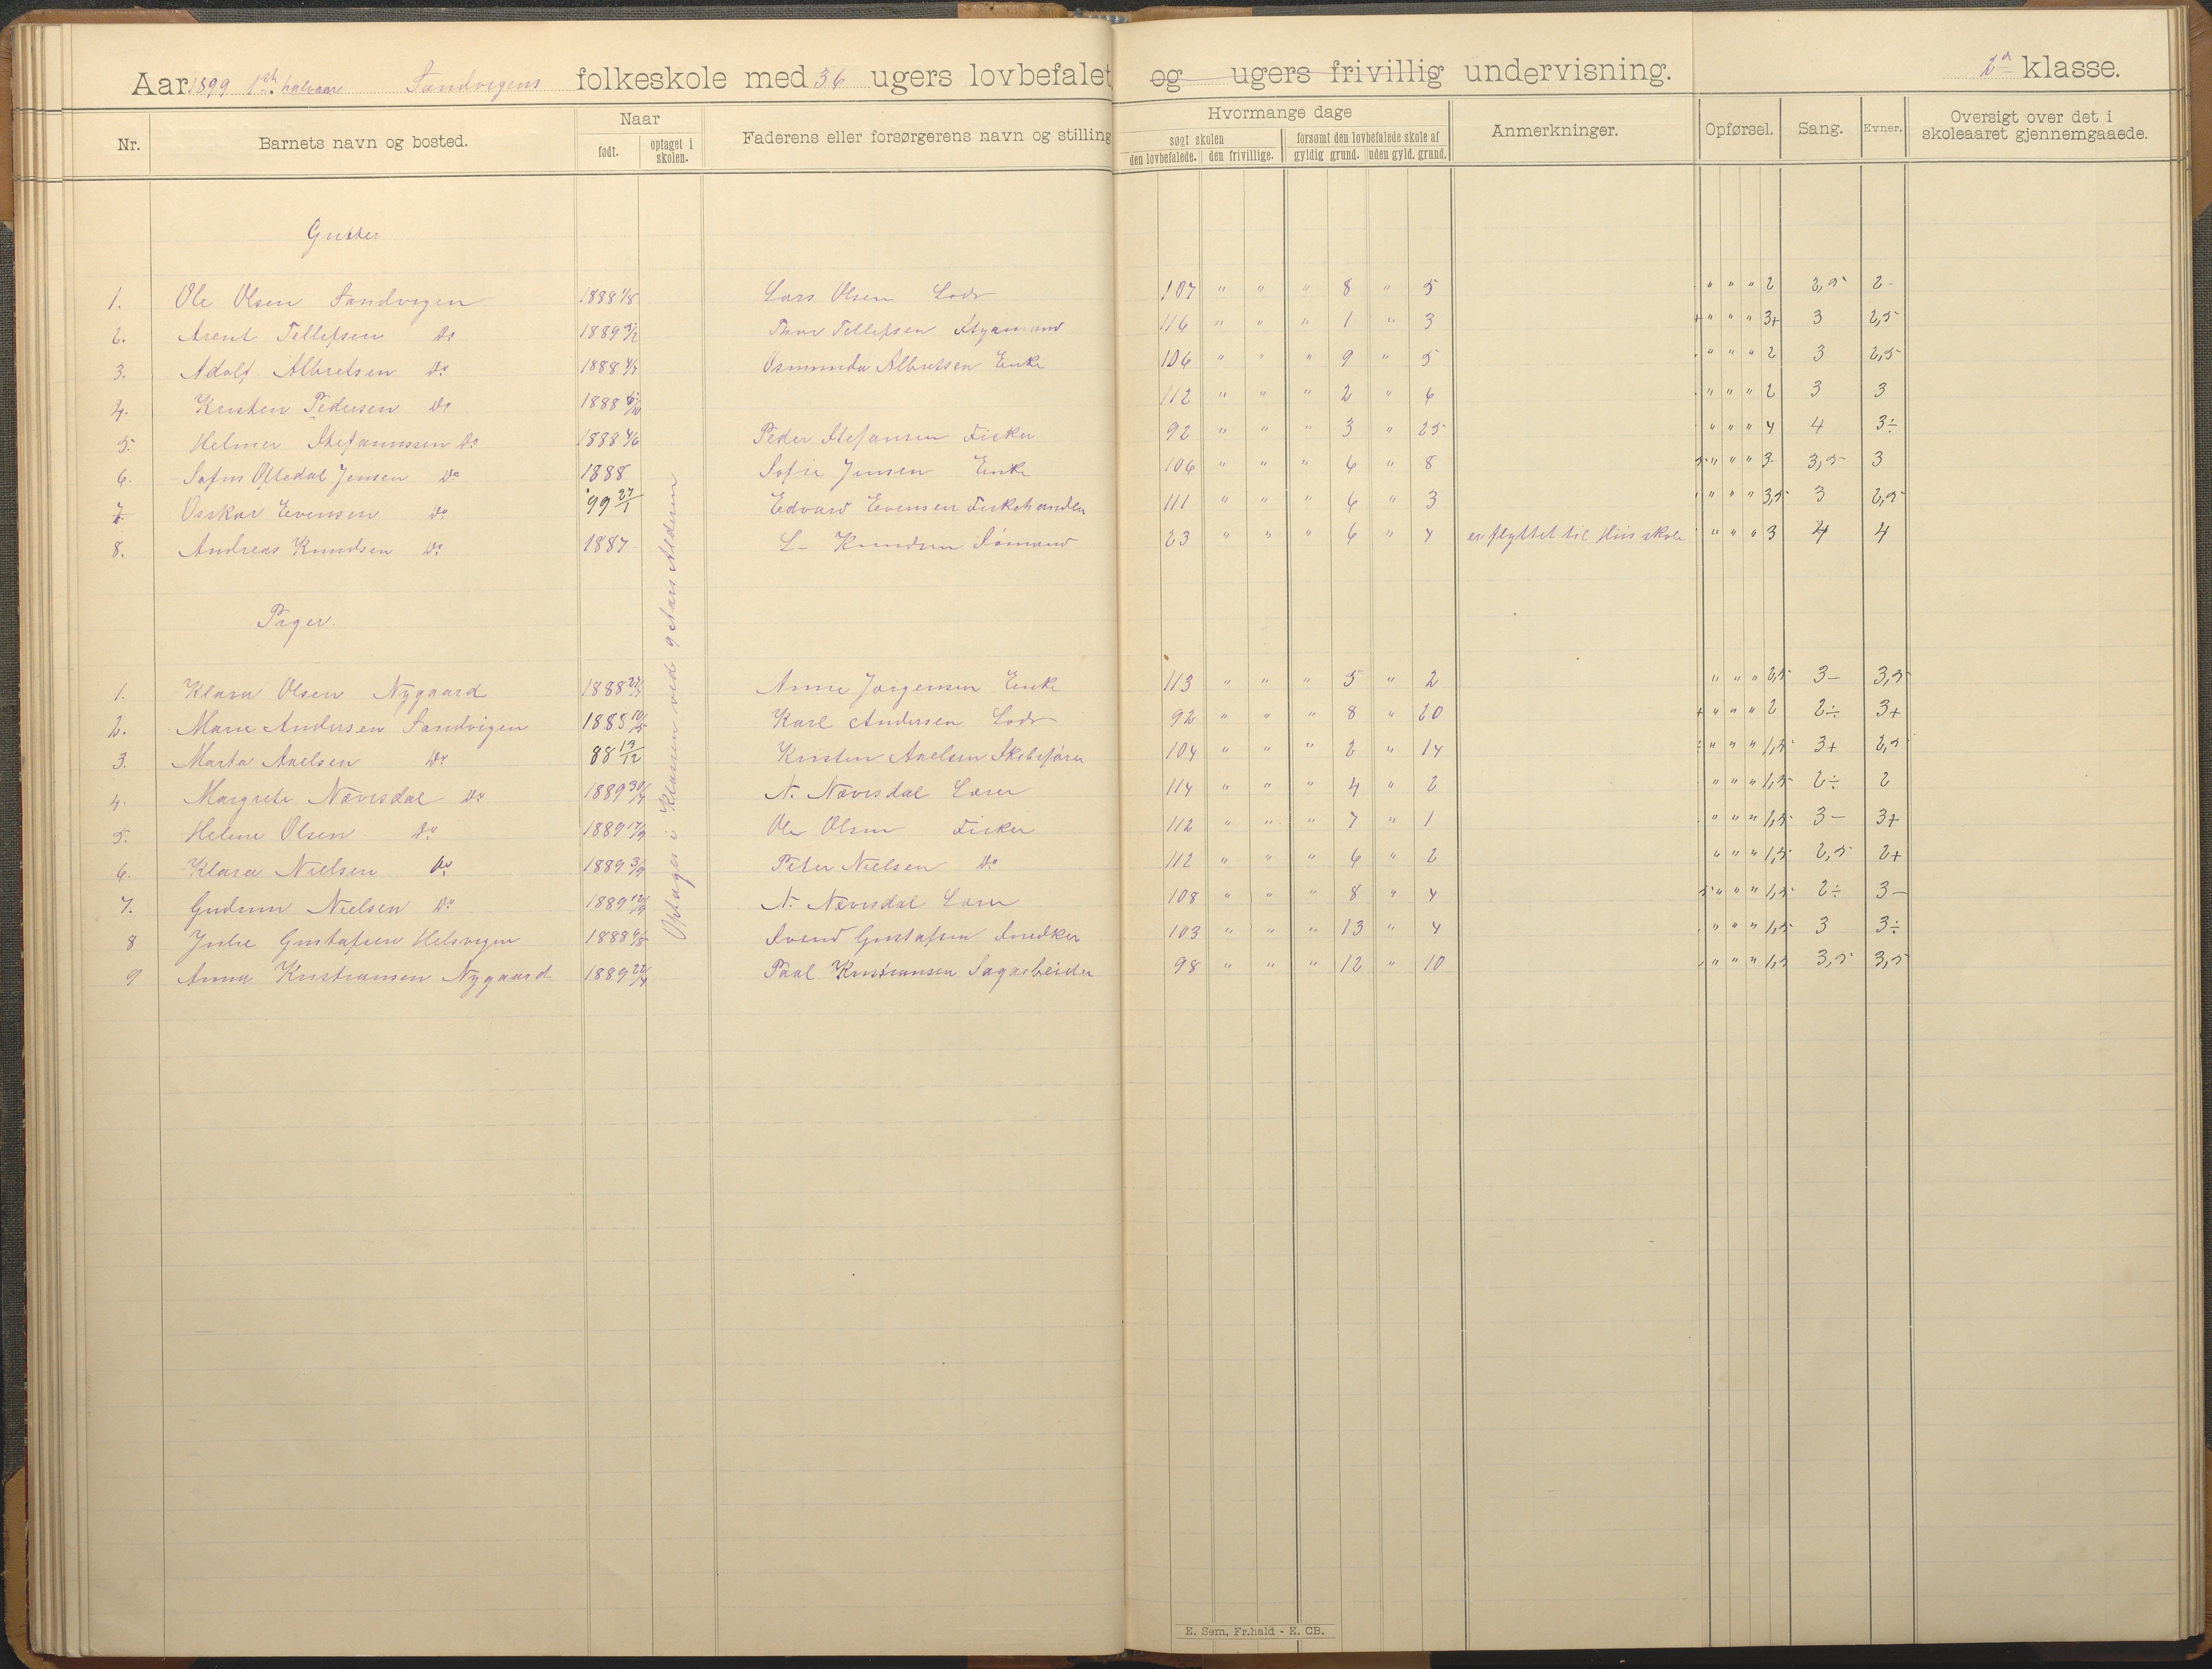 Aar 1899 1ste halvaar Sandvigens folkeskole med 36 ugers lovbefalet og ugers frivillig undervisning. 2den klasse.
Nr. Barnets navn og bosted. Naar født. optaget i skolen. Faderens eller forsørgerens navn og stilling Hvormange dage søgt skolen den lovbefalede. den frivillige. forsømt den lovbefalede skole af gyldig grund. uden gyld. grund. Anmerkninger. Opførsel. Sang. Evner. Oversigt over det i skoleaaret gjennemgaaede.
Gutter
1. Ole Olsen Sandvigen 1888 1/8 Lars Olsen Lods 107 " " " 8 " 5 " " " 2 2,5 2-
2. Arent Tellefsen Do 1889 Thor Tellefsen Styrmand 116 " " " 1 " 3 + " " " 3+ 3 2,5
3. Adolf Albretsen Do 1888 Osmunda Albretsen Enke 106 " " " 9 " 5 " " " 2 3 2,5
4. Kristen Pedersen Do 1888 112 " " " 2 " 6 " " " 2 3 3
5. Helmer Stefanussen Do 1888 4/6 Peder Stefansen Fisker 92 " " " 3 " 25 " " " 4 4 3÷
6. Sofus Oftedal Jensen Do 1888 Sofie Jensen Enke 106 " " " 6 " 8 " " " 3 3,5 3
7. Osskar Evensen Do 99 27/1 Edvard Evensen Fiskehandler 111 " " " 6 " 3 " " " 3,5 3 2,5
8. Andreas Knudsen Do 1887 L- Knudsen Sømand 23 " " " 6 " 4 er flyttet til Hiis skole " " " 3 4 4
Piger.
1. Klara Olsen Nygaard 1888 Anne Jørgensen Enke 113 " " " 5 " 2 " " " 2,5 3- 3,5
2. Marie Andersen Sandvigen 1888 Karl Andersen Lods 92 " " " 8 " 20 + " " " 2 2÷ 3+
3. Marta Axelsen Do 88 19/12 Kristen Axelsen Skibsfører 104 " " " 2 " 14 ÷ " " " 1,5 3+ 2,5
4. Margrete Nævisdal Do 1889 N. Nævisdal Lærer 114 " " " 4 " 2 " " " 1,5 2÷ 2
5. Helene Olsen Do 1889 17/9 Ole Olsen Fisker 112 " " " 7 " 1 " " " 1,5 3- 3+
6. Klara Nielsen Do 1889 3/9 Peter Nielsen Do 112 " " " 6 " 2 " " " 1,5 2,5 2+
7. Gudrun Nielsen Do 1889 12/9 N. Nævisdal Lærer 108 " " " 8 " 4 " " " 1,5 2÷ 3-
8 Julie Gustafsen Helsvigen 1888 6/8 Svend Gustafsen Snedker 103 " " " 13 " 4 " " " 1,5 3 3÷
9 Anna Kristiansen Nygaard 1889 22/4 Paal Kristiansen Sagarbeider 98 " " " 12 " 10 " " " 1,5 3,5 3,5
Optages i Klassen ved 9 Aars Alderen
E. Sem, Fr.hald - E. CB.